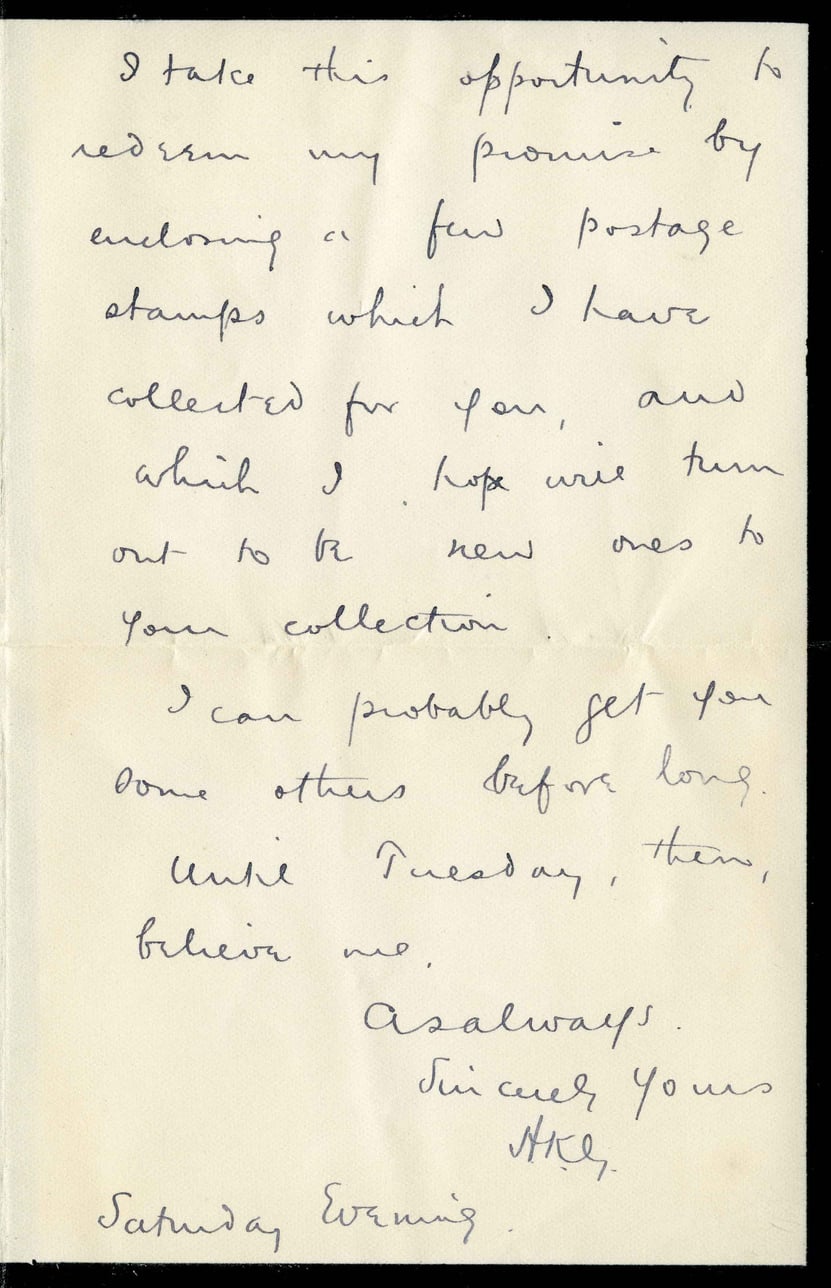 I take this opportunity to
redeem my promise by
enclosing a few postage
stamps which I have
collected for you, and
which I hope will turn
out to be new ones to
your collection.
I can probably get you
some others before long.
Until Tuesday, then,
believe me,
As always.
Sincerely Yours
A.K.G.
Saturday Evening.